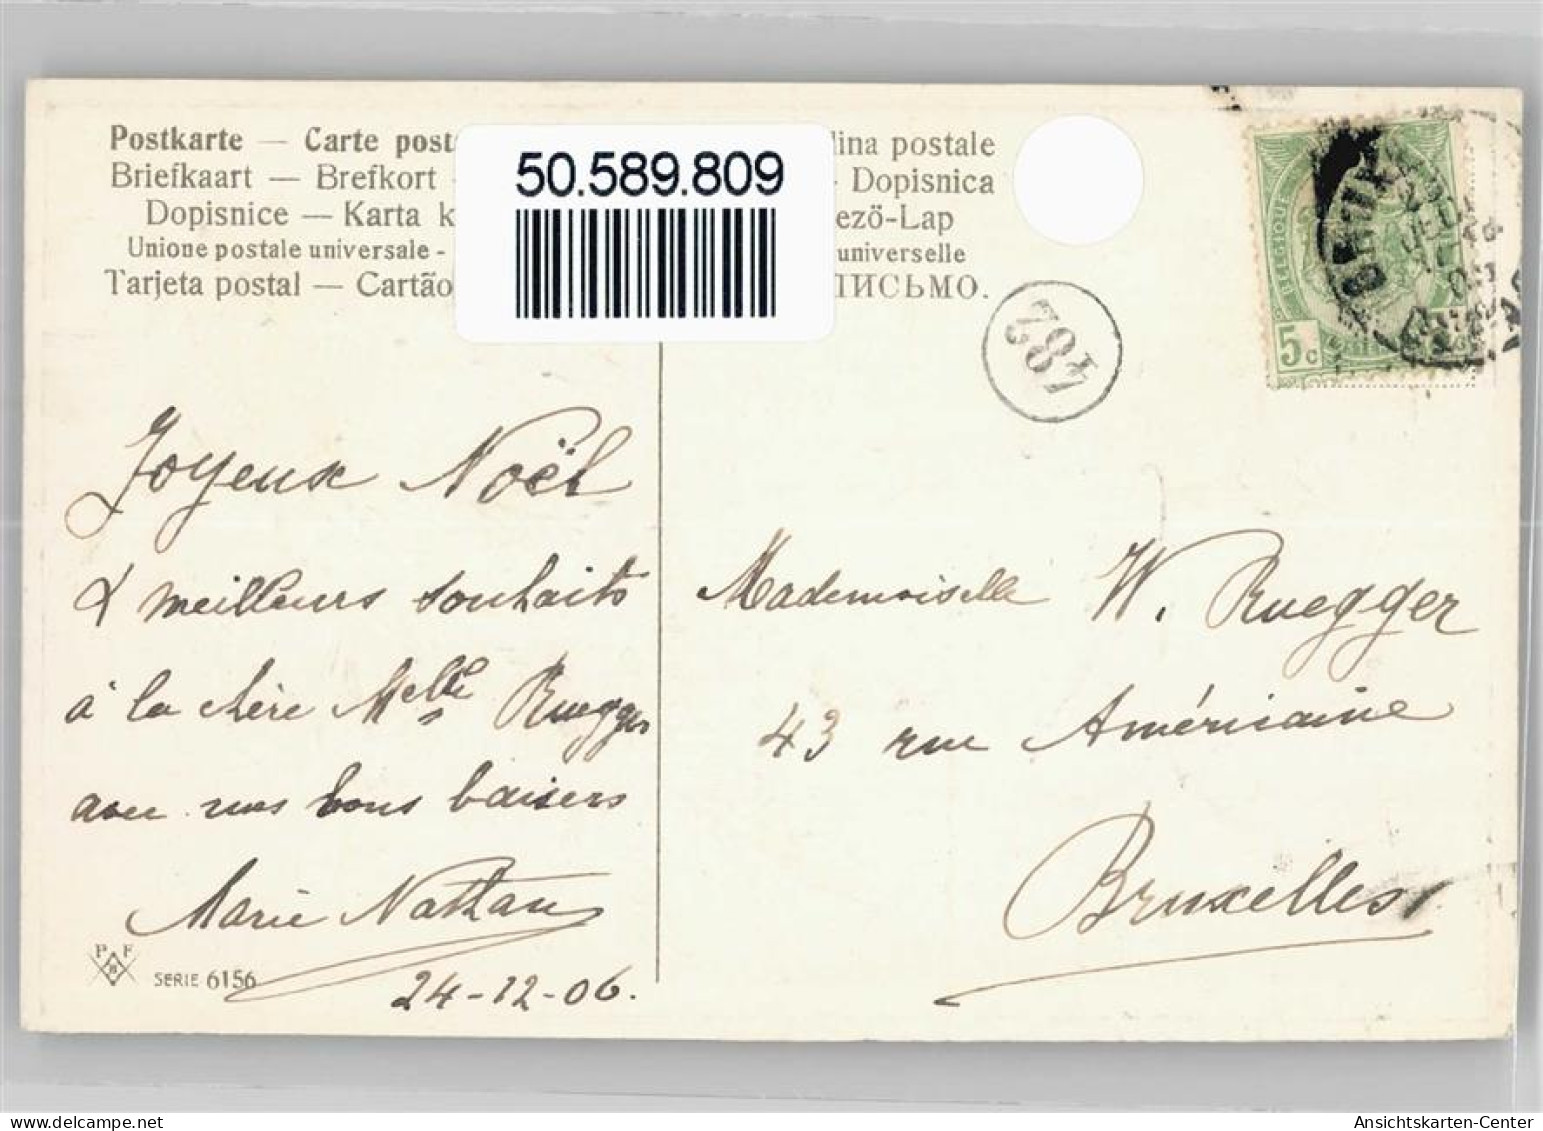 Postkarte — Carte post
Briefkaart — Brefkort
Dopisnice — Karta k
Unione postale universale -
Tarjeta postal — Cartão
50.589.809
lina postale
— Dopisnica
ező-Lap
universelle
ПИСЬМО.
482
BELGIQUE
5 c
Joyeux Noël
& meilleurs souhaits
à la chère Melle Ruegger
avec nos bons baisers
Marie Nathan
24-12-06.
Mademoiselle W. Ruegger
43 rue Américaine
Bruxelles
P F
B
SERIE 6156
Ansichtskarten-Center